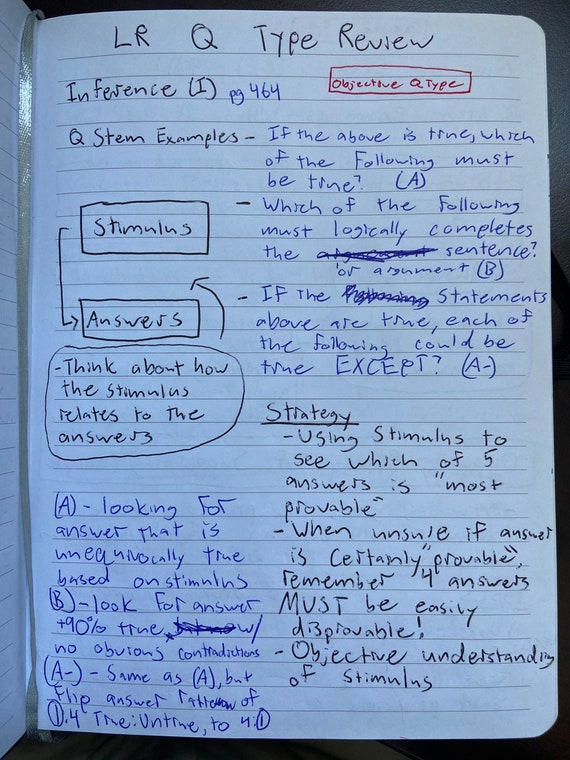 LR Q Type Review
Inference (I) pg 464
Objective Q Type
Q Stem Examples - If the above is true, which
of the following must
be true? (A)
- Which of the following
must logically completes
the sentence?
or argument (B)
- If the Statements
above are true, each of
the following could be
true EXCEPT? (A-)
Stimulus
Answers
-Think about how
the stimulus
relates to the
answers
Strategy
- Using Stimulus to
see which of 5
answers is "most
provable"
- When unsure if answer
is Certainly "provable",
remember 4 answers
MUST be easily
disprovable!
- Objective understanding
of stimulus
(A) - looking for
answer that is
unequivocally true
based on stimulus
(B) - look for answer
+90% true, w/
no obvious contradictions
(A-) - Same as (A), but
flip answer of
1:4 True:Untrue, to 4:1